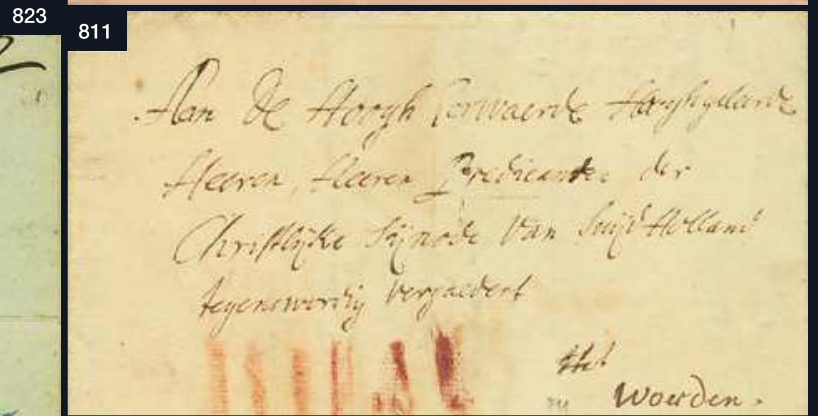 823
811
Aan de Hoogh Eerwaerde Hooghgelarde
Heeren, Heeren Predicanten der
Christlijke Sijnode van Suijd Holland
tegenswordig vergaedert
tot
Woerden.